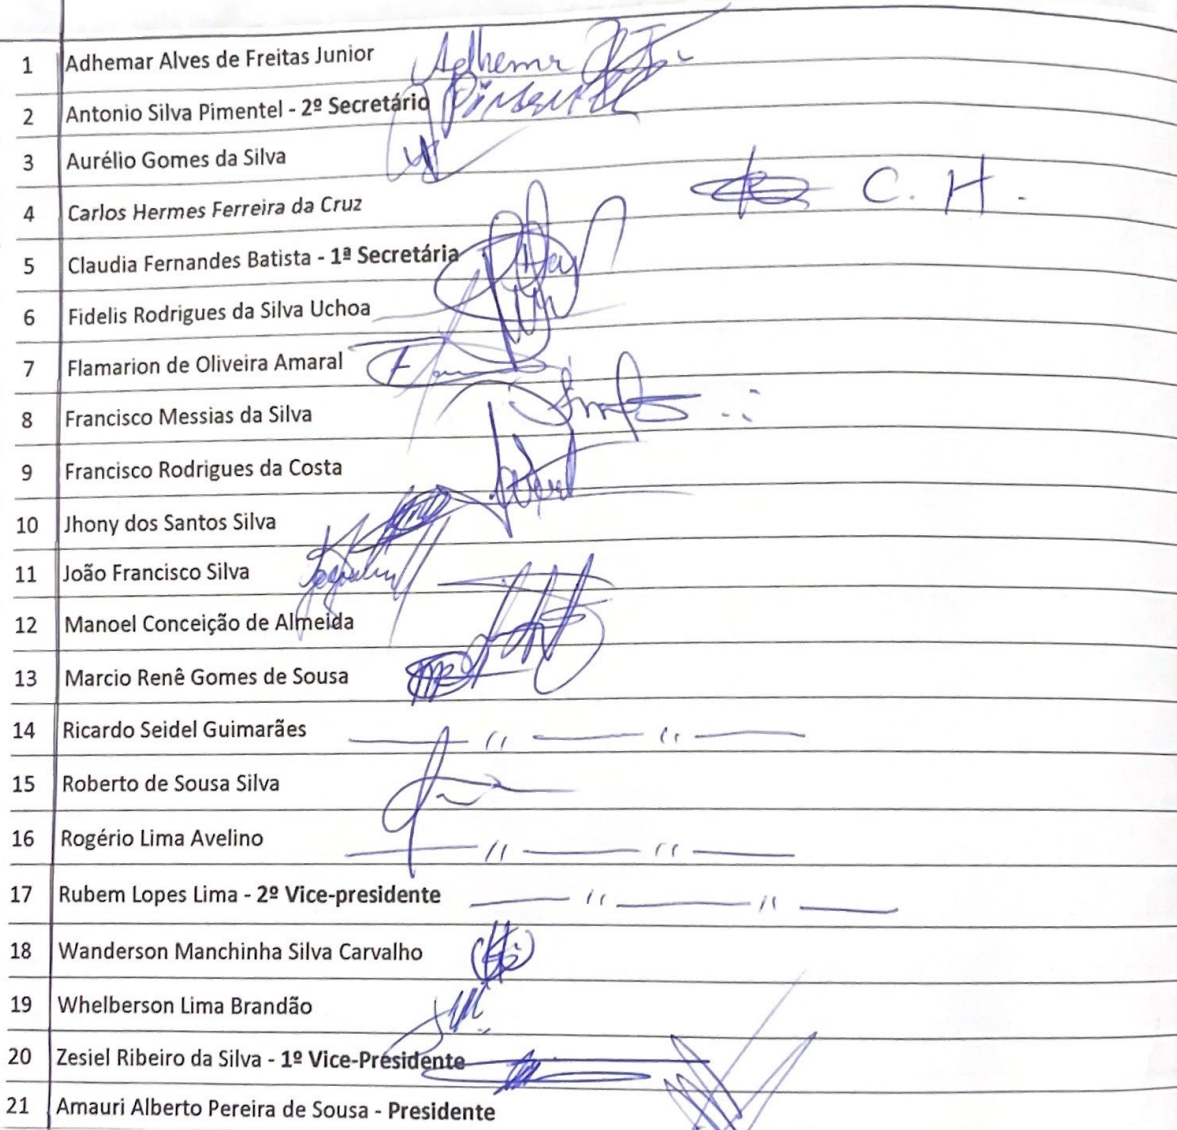 1 Adhemar Alves de Freitas Junior Adhemar
2 Antonio Silva Pimentel - 2º Secretário Pimentel
3 Aurélio Gomes da Silva
4 Carlos Hermes Ferreira da Cruz C. H.
5 Claudia Fernandes Batista - 1ª Secretária
6 Fidelis Rodrigues da Silva Uchoa
7 Flamarion de Oliveira Amaral
8 Francisco Messias da Silva
9 Francisco Rodrigues da Costa
10 Jhony dos Santos Silva
11 João Francisco Silva
12 Manoel Conceição de Almeida
13 Marcio Renê Gomes de Sousa
14 Ricardo Seidel Guimarães — '' — '' —
15 Roberto de Sousa Silva
16 Rogério Lima Avelino — '' — '' —
17 Rubem Lopes Lima - 2º Vice-presidente — '' — '' —
18 Wanderson Manchinha Silva Carvalho
19 Whelberson Lima Brandão
20 Zesiel Ribeiro da Silva - 1º Vice-Presidente
21 Amauri Alberto Pereira de Sousa - Presidente